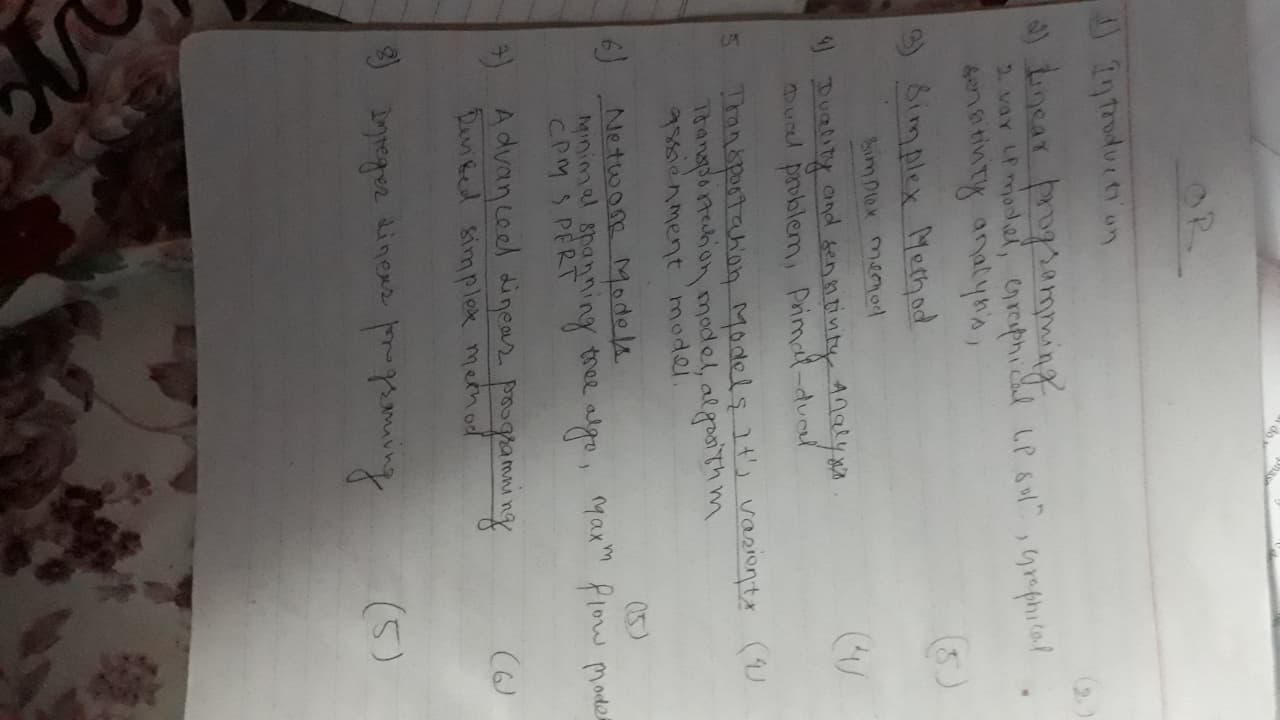 OR
1) Introduction
(2)
2) Linear programming
2 var LP model, Graphical LP solⁿ, Graphical
sensitivity analysis,
(5)
3) Simplex Method
simplex method
(4)
4) Duality and sensitivity Analysis.
Dual problem, Primal-dual
5 Transportation Models & It's varionts (4)
Transportation model, algorithm
assienment model.
(5)
6) Network Models
Minimal spanning tree algo, Maxᵐ flow model
CPM & PERT
7) Advanced Linear programming (6)
Revised simplex method
8) Integer Linear programming (5)